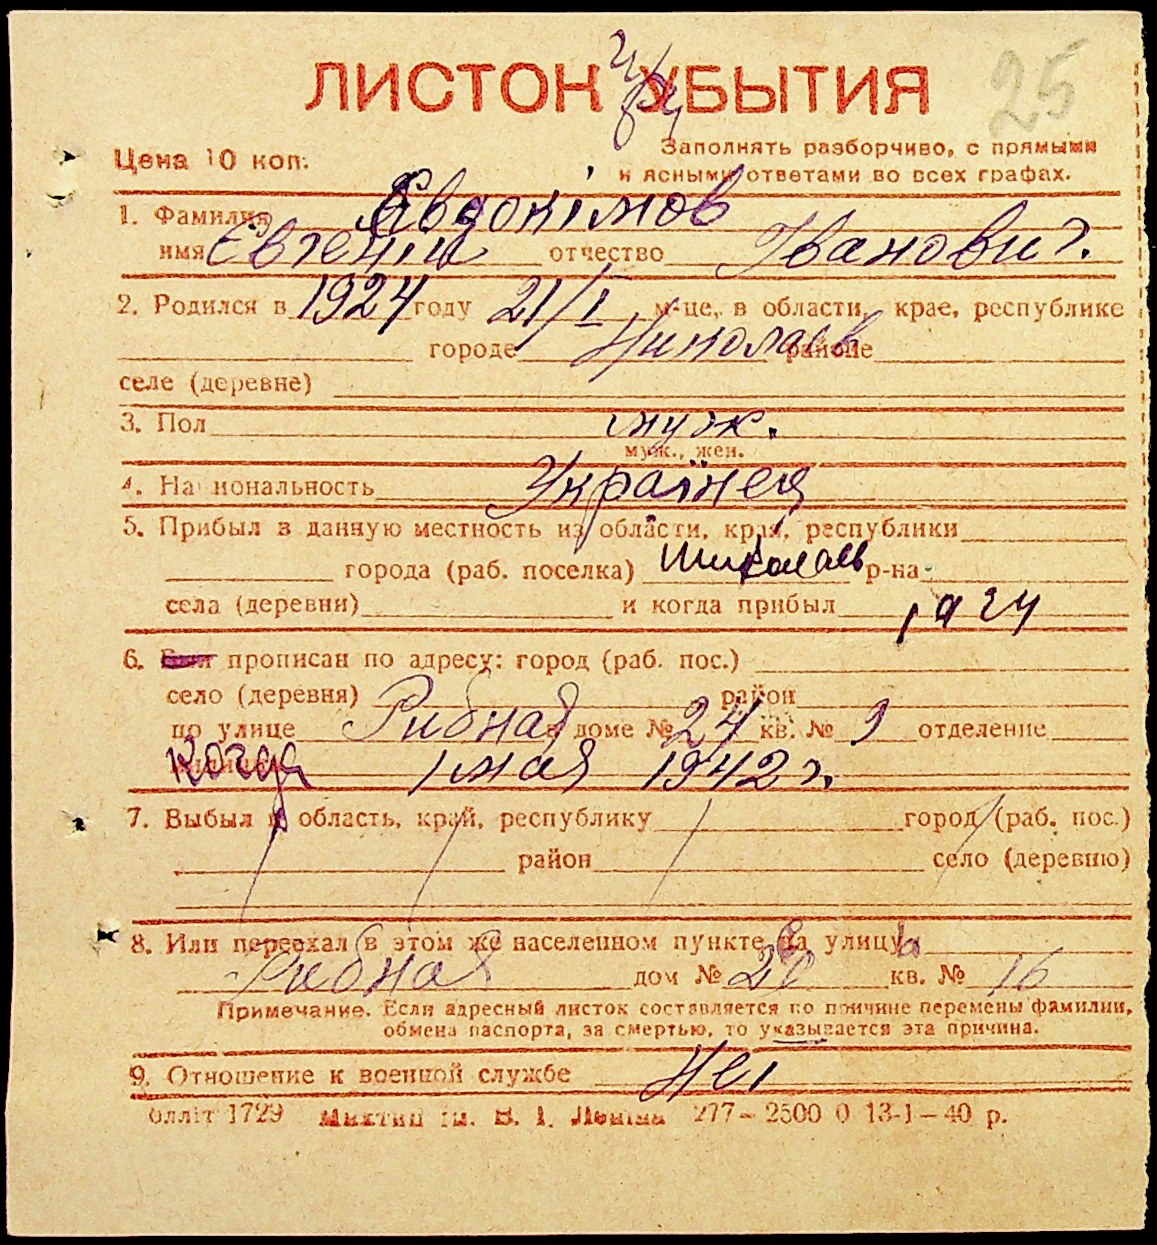 25
ЛИСТОК УБЫТИЯ
Цена 10 коп.
Заполнять разборчиво, с прямыми
и ясными ответами во всех графах.
1. Фамилия Евдокімов
имя Євгений отчество Іванович.
2. Родился в 1924 году 21/I м-це, в области, крае, республике
городе Николаев районе
селе (деревне)
3. Пол муж.
муж., жен.
4. Национальность Українец
5. Прибыл в данную местность из области, края, республики
города (раб. поселка) Николаев р-на
села (деревни) и когда прибыл 1924
6. прописан по адресу: город (раб. пос.)
село (деревня) район
по улице Рибная в доме № 24 кв. № 9 отделение
когда 1 мая 1942 г.
7. Выбыл в область, край, республику город (раб. пос.)
район село (деревню)
8. Или переехал в этом же населенном пункте улицы
Рибная дом № 20 кв. № 16
Примечание. Если адресный листок составляется по причине перемены фамилии,
обмена паспорта, за смертью, то указывается эта причина.
9. Отношение к военной службе Неі
1729 ім. В. І. Леніна 277–2500 0 13-І–40 р.